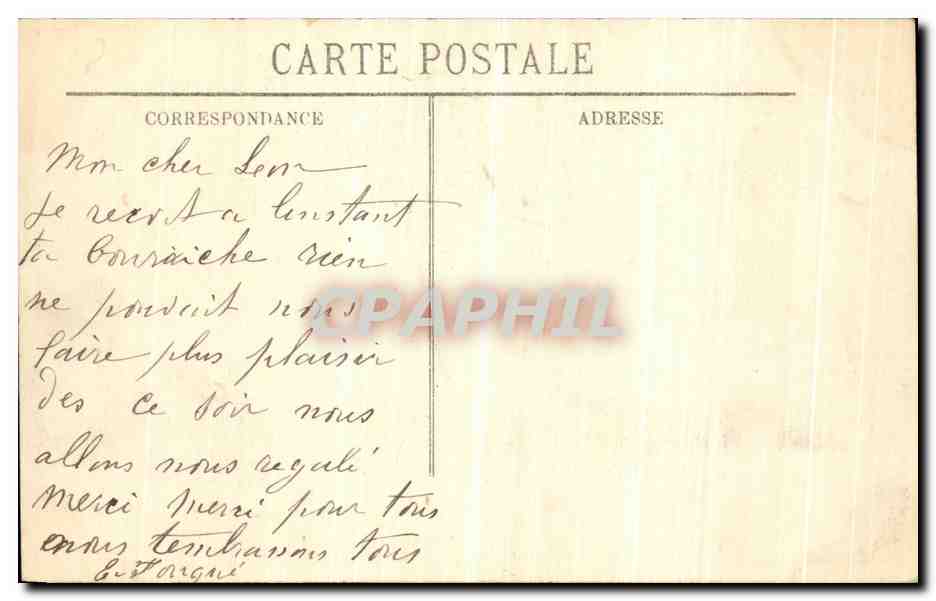 CARTE POSTALE
CORRESPONDANCE
ADRESSE
Mon cher Leon
Je recoit a linstant
ta bourriche rien
ne pouvait nous
faire plus plaisir
des ce soir nous
allons nous regalé
Merci Merci pour tous
nous tembrassons tous
CPAPHIL